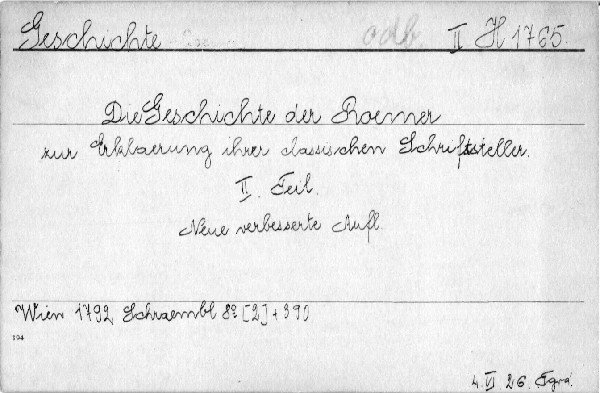 Geschichte odb II H 1765.
Die Geschichte der Roemer
zur Erklaerung ihrer classischen Schriftsteller.
II. Teil.
Neue verbesserte Aufl.
Wien 1792 Schraembl 8º [2] + 390
104
4. VI 26.